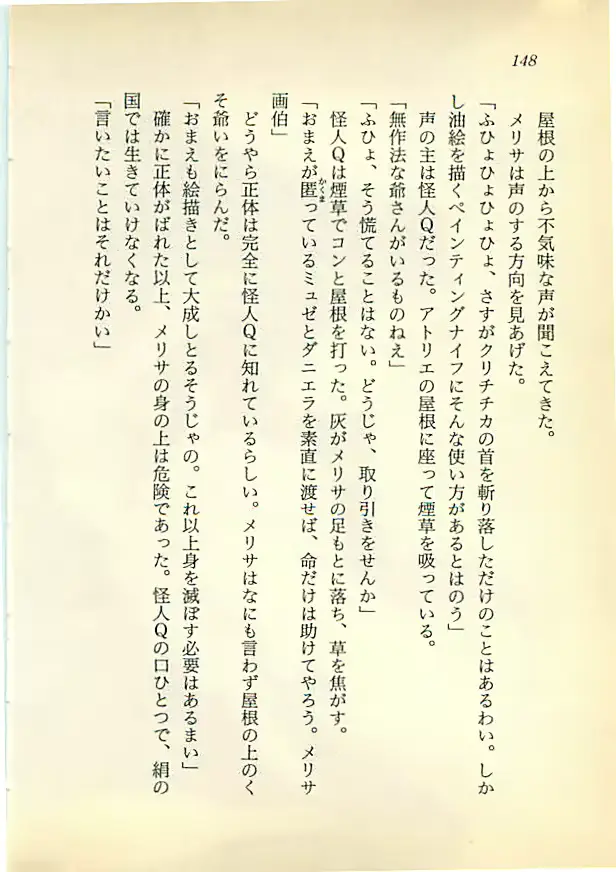 148
屋根の上から不気味な声が聞こえてきた。
メリサは声のする方向を見あげた。
「ふひょひょひょひょ、さすがクリチチカの首を斬り落しただけのことはあるわい。しか
し油絵を描くペインティングナイフにそんな使い方があるとはのう」
声の主は怪人Qだった。アトリエの屋根に座って煙草を吸っている。
「無作法な爺さんがいるものねえ」
「ふひょ、そう慌てることはない。どうじゃ、取り引きをせんか」
怪人Qは煙草でコンと屋根を打った。灰がメリサの足もとに落ち、草を焦がす。
「おまえが匿っているミュゼとダニエラを素直に渡せば、命だけは助けてやろう。メリサ
かくま
画伯」
どうやら正体は完全に怪人Qに知れているらしい。メリサはなにも言わず屋根の上のく
そ爺いをにらんだ。
「おまえも絵描きとして大成しとるそうじゃの。これ以上身を滅ぼす必要はあるまい」
確かに正体がばれた以上、メリサの身の上は危険であった。怪人Qの口ひとつで、絹の
国では生きていけなくなる。
「言いたいことはそれだけかい」